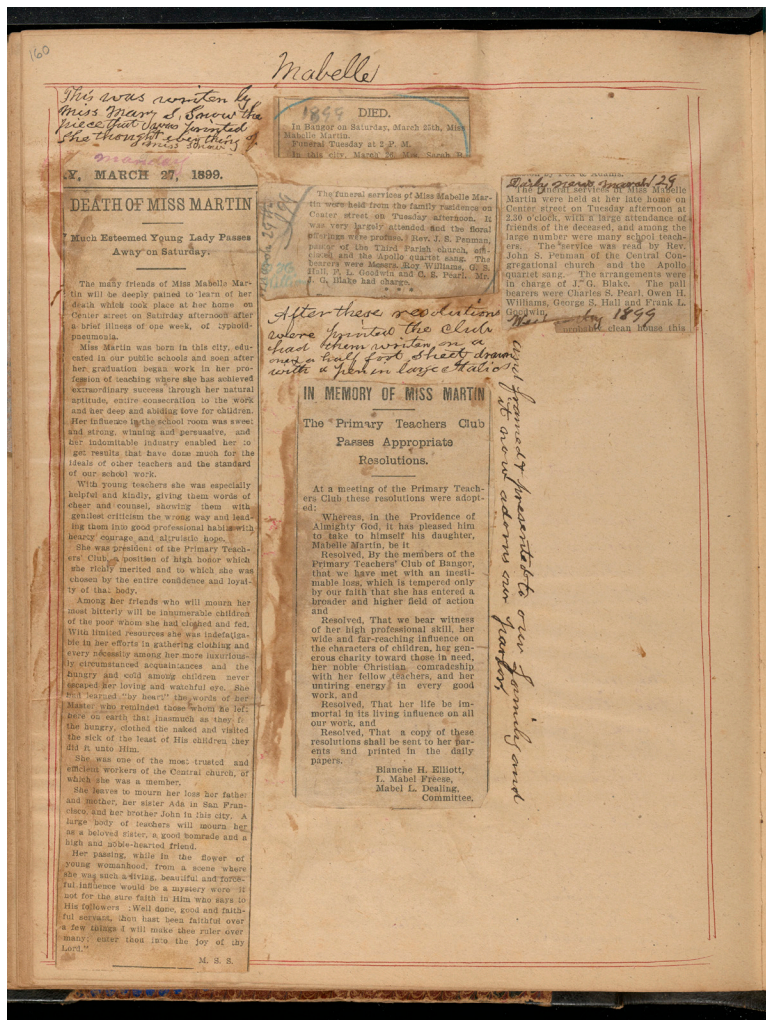 160
Mabelle
This was written by
Miss Mary S. Snow the
piece that was printed
she thought everything of
Miss Snow
Monday
Y, MARCH 27, 1899.
DEATH OF MISS MARTIN
Much Esteemed Young Lady Passes
Away on Saturday.
The many friends of Miss Mabelle Mar-
tin will be deeply pained to learn of her
death which took place at her home on
Center street on Saturday afternoon after
a brief illness of one week, of typhoid-
pneumonia.
Miss Martin was born in this city, edu-
cated in our public schools and soon after
her graduation began work in her pro-
fession of teaching where she has achieved
extraordinary success through her natural
aptitude, entire consecration to the work
and her deep and abiding love for children.
Her influence in the school room was sweet
and strong, winning and persuasive, and
her indomitable industry enabled her to
get results that have done much for the
ideals of other teachers and the standard
of our school work.
With young teachers she was especially
helpful and kindly, giving them words of
cheer and counsel, showing them with
gentlest criticism the wrong way and lead-
ing them into good professional habits with
hearty courage and altruistic hope.
She was president of the Primary Teach-
ers' Club, a position of high honor which
she richly merited and to which she was
chosen by the entire confidence and loyal-
ty of that body.
Among her friends who will mourn her
most bitterly will be innumerable children
of the poor whom she had clothed and fed.
With limited resources she was indefatiga-
ble in her efforts in gathering clothing and
every necessity among her more luxurious-
ly circumstanced acquaintances and the
hungry and cold among children never
escaped her loving and watchful eye. She
had learned "by heart" the words of her
Master who reminded those whom he left
here on earth that inasmuch as they fe
the hungry, clothed the naked and visited
the sick of the least of His children they
did it unto Him.
She was one of the most trusted and
efficient workers of the Central church, of
which she was a member.
She leaves to mourn her loss her father
and mother, her sister Ada in San Fran-
cisco, and her brother John in this city. A
large body of teachers will mourn her
as a beloved sister, a good comrade and a
high and noble-hearted friend.
Her passing, while in the flower of
young womanhood, from a scene where
she was such a living, beautiful and force-
ful influence would be a mystery were it
not for the sure faith in Him who says to
His followers :Well done, good and faith-
ful servant, thou hast been faithful over
a few things I will make thee ruler over
many; enter thou into the joy of thy
Lord."
M. S. S.
1899
DIED.
In Bangor on Saturday, March 25th, Miss
Mabelle Martin.
Funeral Tuesday at 2 P. M.
In this city, March 26, Mrs. Sarah B.
The funeral services of Miss Mabelle Mar-
tin were held from the family residence on
Center street on Tuesday afternoon. It
was very largely attended and the floral
offerings were profuse. Rev. J. S. Penman,
pastor of the Third Parish church, offi-
ciated and the Apollo quartet sang. The
bearers were Messrs. Roy Williams, G. S.
Hall, F. L. Goodwin and C. S. Pearl. Mr.
J. G. Blake had charge.
Daily news March 29
The funeral services of Miss Mabelle
Martin were held at her late home on
Center street on Tuesday afternoon at
2.30 o'clock, with a large attendance of
friends of the deceased, and among the
large number were many school teach-
ers. The service was read by Rev.
John S. Penman of the Central Con-
gregational church and the Apollo
quartet sang. The arrangements were
in charge of J. G. Blake. The pall
bearers were Charles S. Pearl, Owen H.
Williams, George S. Hall and Frank L.
Goodwin.
Wednesday 1899
probably clean house this
After these resolutions
were printed the club
had them written on a
one & a half foot sheet drawn
with a pen in large italics
and framed & presented to our family and
it now adorns our parlors
IN MEMORY OF MISS MARTIN
The Primary Teachers Club
Passes Appropriate
Resolutions.
At a meeting of the Primary Teach-
ers Club these resolutions were adopt-
ed:
Whereas, in the Providence of
Almighty God, it has pleased him
to take to himself his daughter,
Mabelle Martin, be it
Resolved, By the members of the
Primary Teachers' Club of Bangor,
that we have met with an inesti-
mable loss, which is tempered only
by our faith that she has entered a
broader and higher field of action
and
Resolved, That we bear witness
of her high professional skill, her
wide and far-reaching influence on
the characters of children, her gen-
erous charity toward those in need,
her noble Christian comradeship
with her fellow teachers, and her
untiring energy in every good
work, and
Resolved, That her life be im-
mortal in its living influence on all
our work, and
Resolved, That a copy of these
resolutions shall be sent to her par-
ents and printed in the daily
papers.
Blanche H. Elliott,
L. Mabel Freese,
Mabel L. Dealing,
Committee.